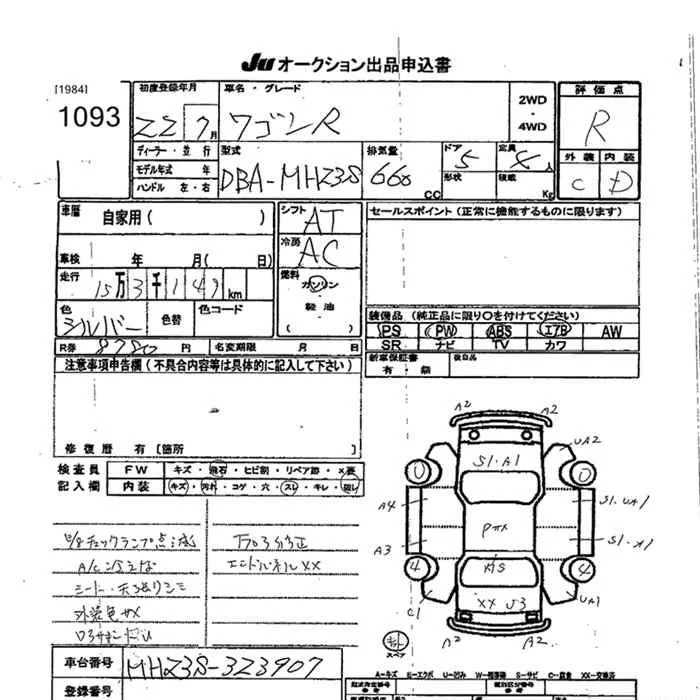 Ju オークション出品申込書
[1984]
1093
初度登録年月
22 7月
車名・グレード
ワゴンR
2WD
・
4WD
評価点
R
外装 内装
C D
ディーラー・並行
モデル年式 年
ハンドル 左・右
型式
DBA-MH23S
排気量
660 cc
ドア
5
形状
定員
4人
積載
Kg
車歴
自家用( )
シフト
AT
冷房
AC
セールスポイント(正常に機能するものに限ります)
車検 年 月( 日)
走行
15万3千149km
燃料
ガソリン
軽油
( )
色
シルバー
色替
色コード
装備品 (純正品に限り〇を付けてください)
PS PW ABS エアB AW
SR ナビ TV カワ
R券 円 名変期限 月 日
新車保証書
有・無
後日品
注意事項申告欄(不具合内容等は具体的に記入して下さい)
修復歴 有 [箇所 ]
検査員
記入欄
FW キズ・飛石・ヒビ割・リペア跡・×要
内装 キズ・汚れ・コゲ・穴・スレ・キレ・
A2 A2
UA2
S1・A1
A4
S1・UA1
A3
C1
XX U3
UA1
A2 A2
スペア
エンドパネルXX
A-キズ E-エクボ U-凹み W-補修跡 S-サビ C-腐食 XX-交換済
車台番号
MH23S-323907
登録番号